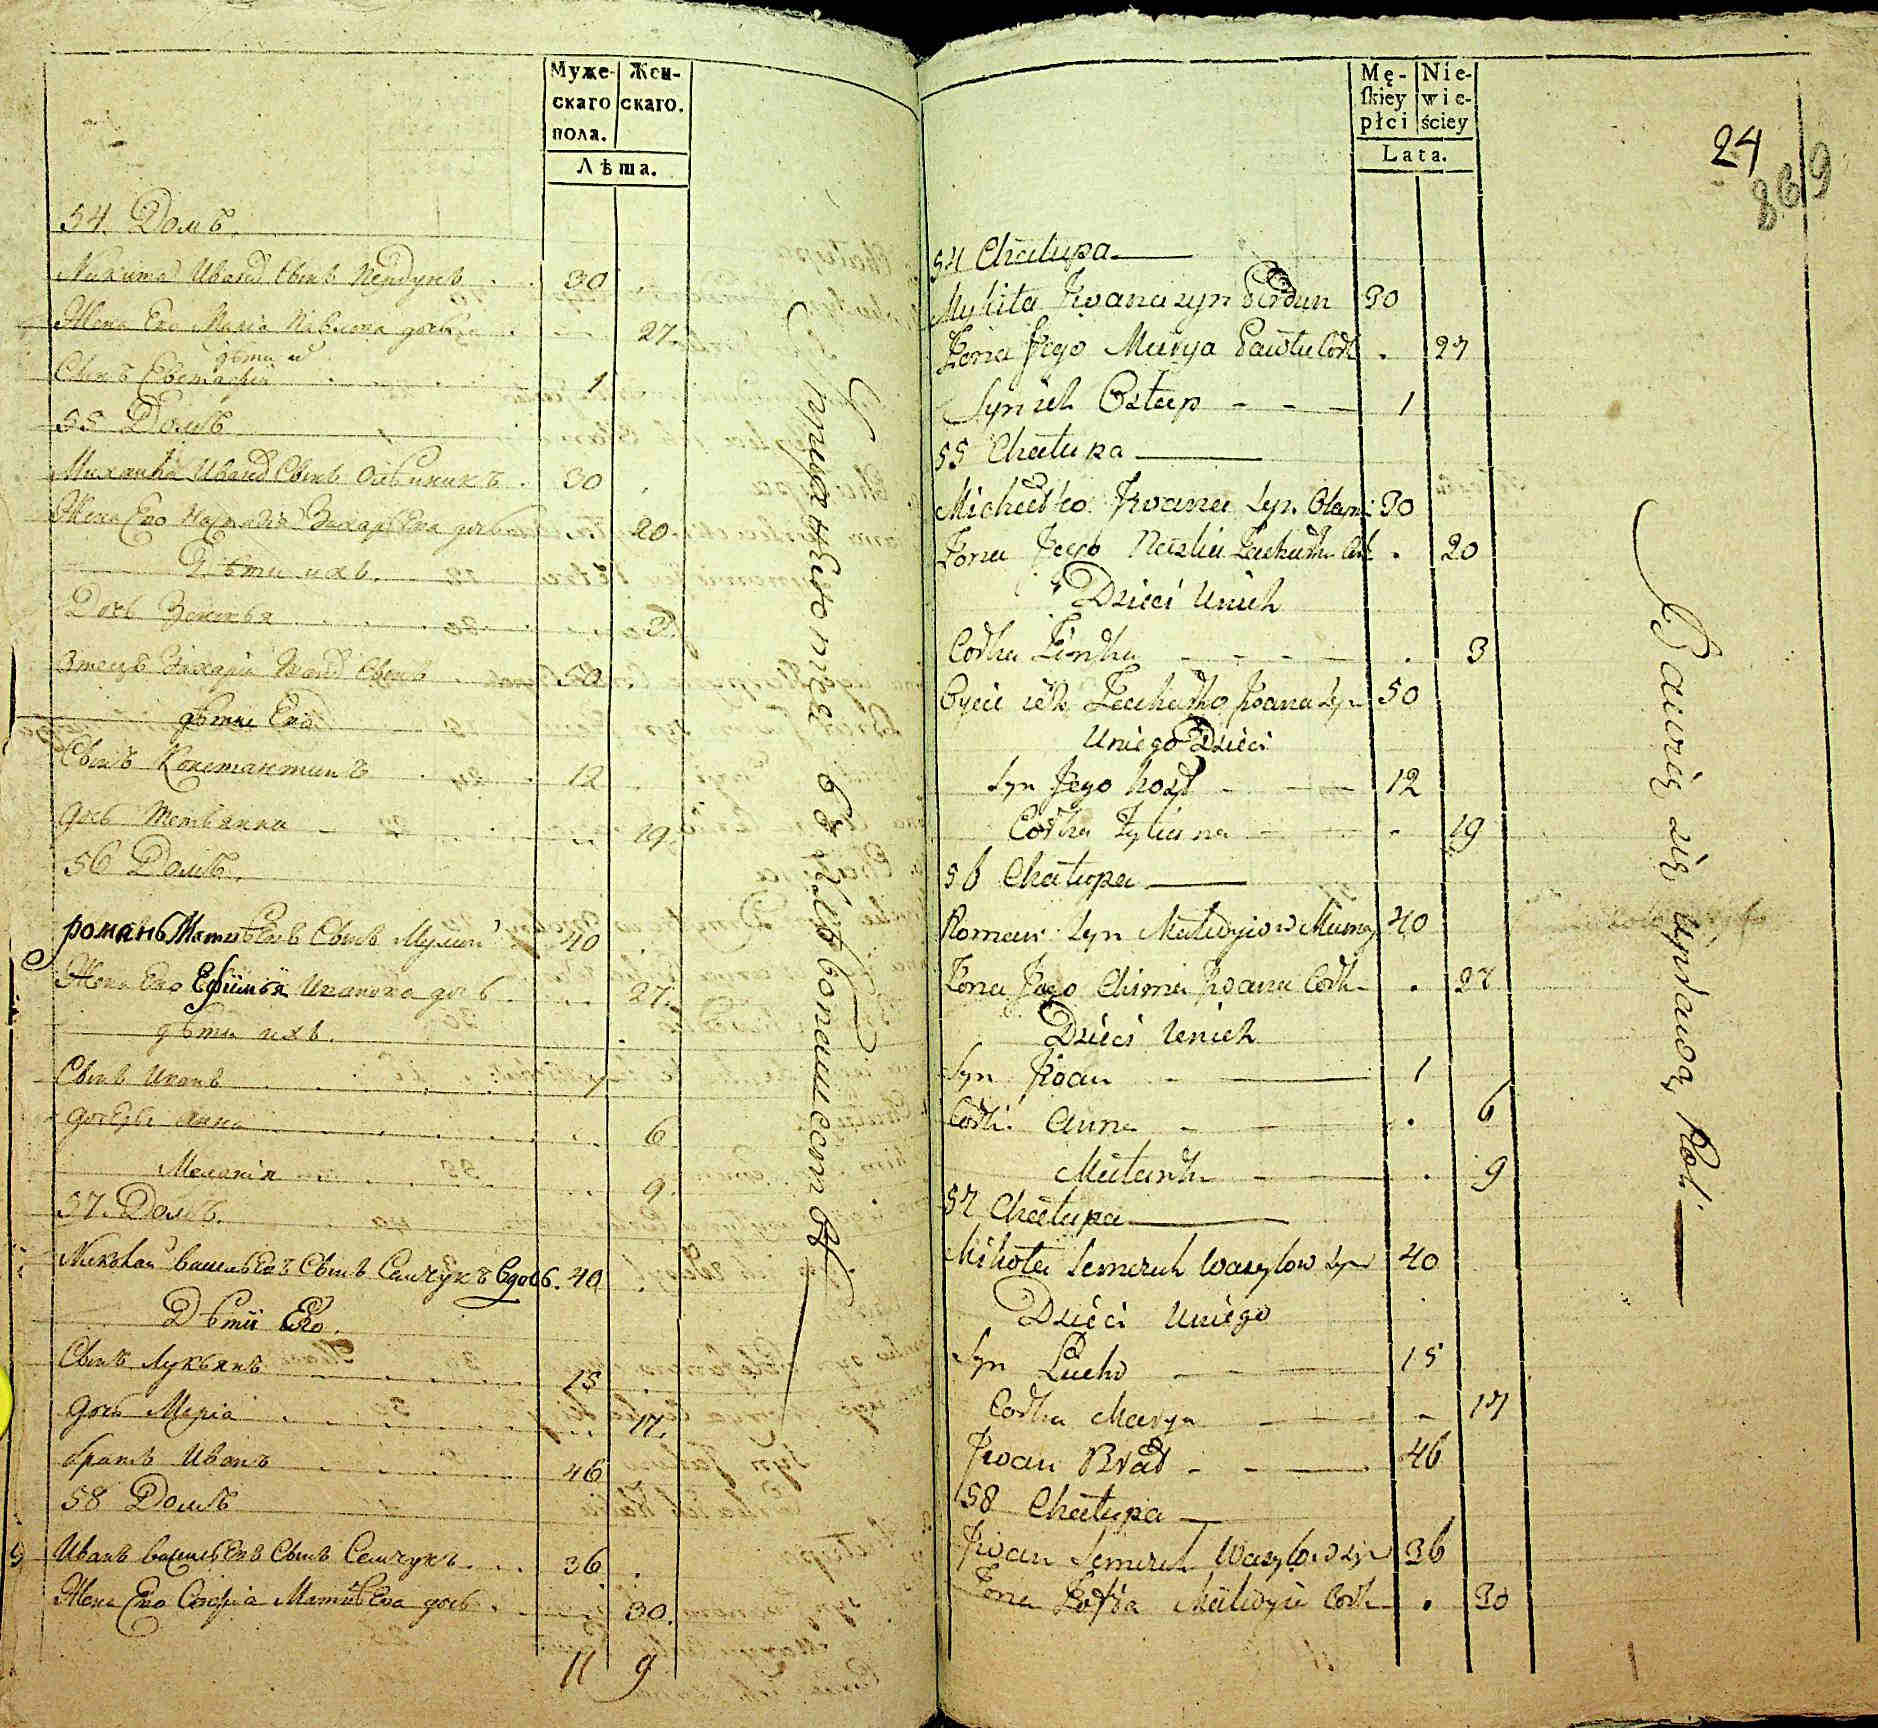 Муже-
скаго
пола.
Жен-
скаго.
Лѣта.
54. Домъ.
Никита Иванов Сынъ 30
Жена Его Марiа Павлова дочь 27
дѣти их
Сынъ Евстафiй 1
55 Домъ
Михайла Иванов Сынъ Олѣйникъ 30
Жена Его Наталiа Захарьева дочь 20
Дѣти ихъ.
Дочь Зеновья 3
Отецъ Захарiй Иванов Сынъ 50
дѣти Его
Сынъ Константинъ 12
дочь Тетьянна 19
56 Домъ.
романъ Матвѣевъ Сынъ 40
Жена Его Ефимья Иванова дочь 27
дѣти ихъ.
Сынъ Иванъ 1
дочери Анна 6
Меланiя 9
57. Домъ.
Николай Васильевъ Сынъ Семчукъ вдовъ. 40
Дѣти Его.
Сынъ Лукьянъ 15
дочь Марiа 17.
братъ Иванъ 46
58 Домъ
Иванъ Васильевъ Сынъ Семчукъ 36
Жена Его Софiа Матвѣева дочь 30.
11 9
Упражняются в хлѣбопашествѣ
Mę-
skiey
płci
Nie-
wie-
ściey
Lata.
24
869
54 Chałupa
Mykita Iwana syn 30
Żona Jego Marya Pawła Cork 27
Syn ich Ostap 1
55 Chałupa
Michałko Iwana Syn 30
Żona Jego Nastia Zachark Cork 20
Dzieci Unich
Corka Zinka 3
Oyciec ich Zacharko Iwana Syn 50
Uniego Dzieci
Syn Jego Kost 12
Corka Tytianna 19
56 Chałupa
Roman Syn Matwyiow 40
Żona Jego Chima Iwana Cork 27
Dzieci Unich
Syn Iwan 1
Corki Anna 6
Małanka 9
57 Chałupa
Mikoła Semczuk Wasylow Syn 40
Dzieci Uniego
Syn Łucko 15
Corka Marya 17
Iwan Brat 46
58 Chałupa
Iwan Semczuk Wasylow Syn 36
Żona Zofia Matwyia Cork 30
Bawią się uprawą Roli